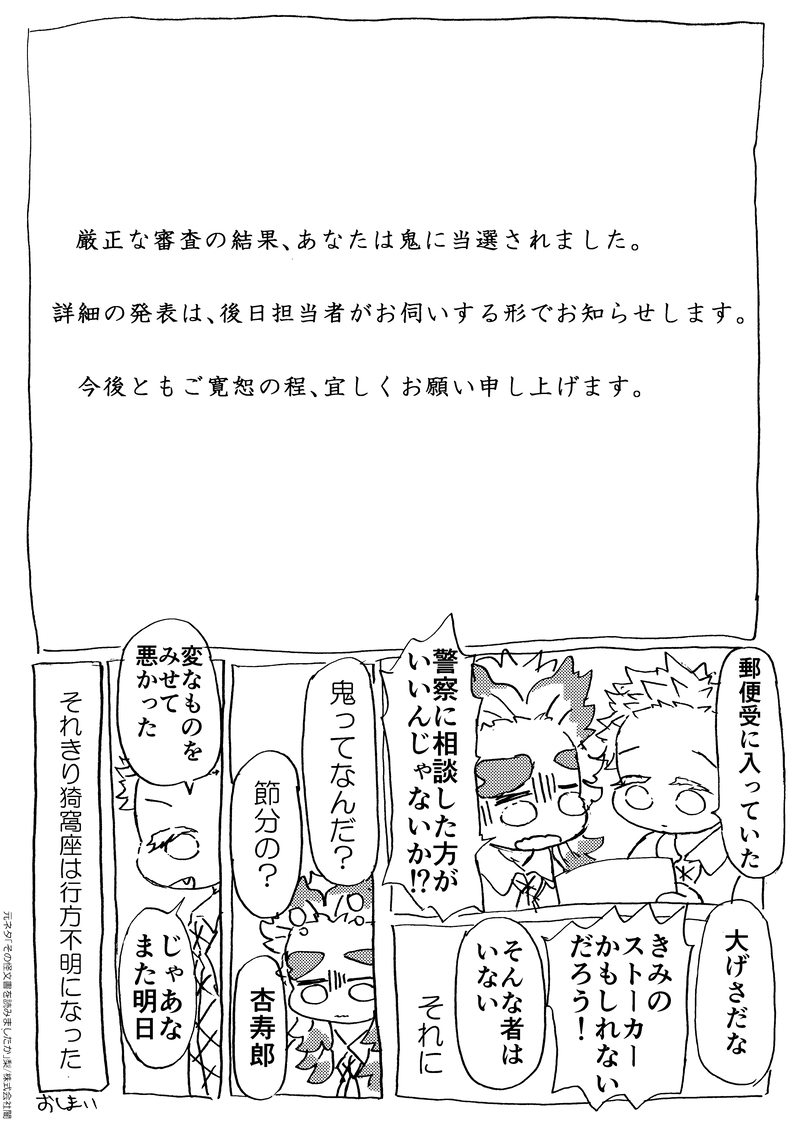 厳正な審査の結果、あなたは鬼に当選されました。
詳細の発表は、後日担当者がお伺いする形でお知らせします。
今後ともご寛恕の程、宜しくお願い申し上げます。
郵便受に入っていた
警察に相談した方が
いいんじゃないか!?
大げさだな
きみの
ストーカー
かもしれない
だろう!
そんな者は
いない
それに
鬼ってなんだ?
節分の?
杏寿郎
変なものを
みせて
悪かった
じゃあな
また明日
それきり猗窩座は行方不明になった
おしまい
元ネタ「その怪文書を読みましたか」梨/株式会社闇